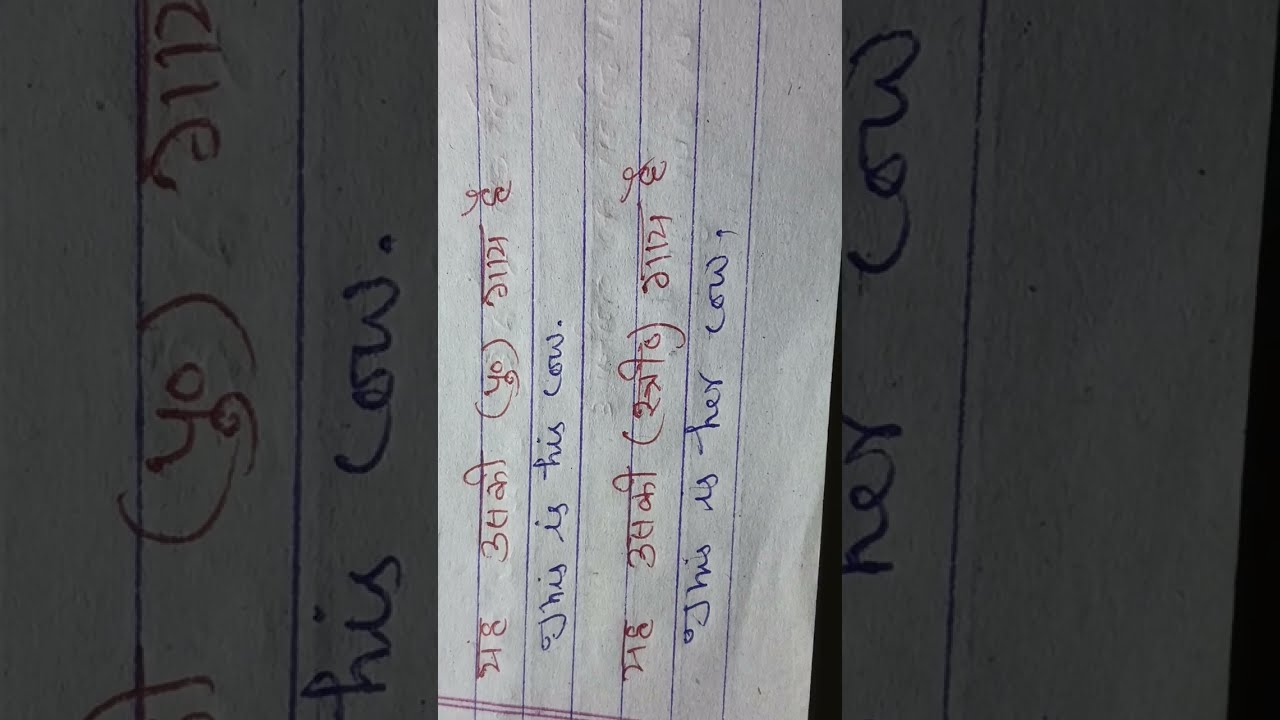 यह उसकी (पु०) गाय है
This is his cow.
यह उसकी (स्त्री०) गाय है
This is her cow,